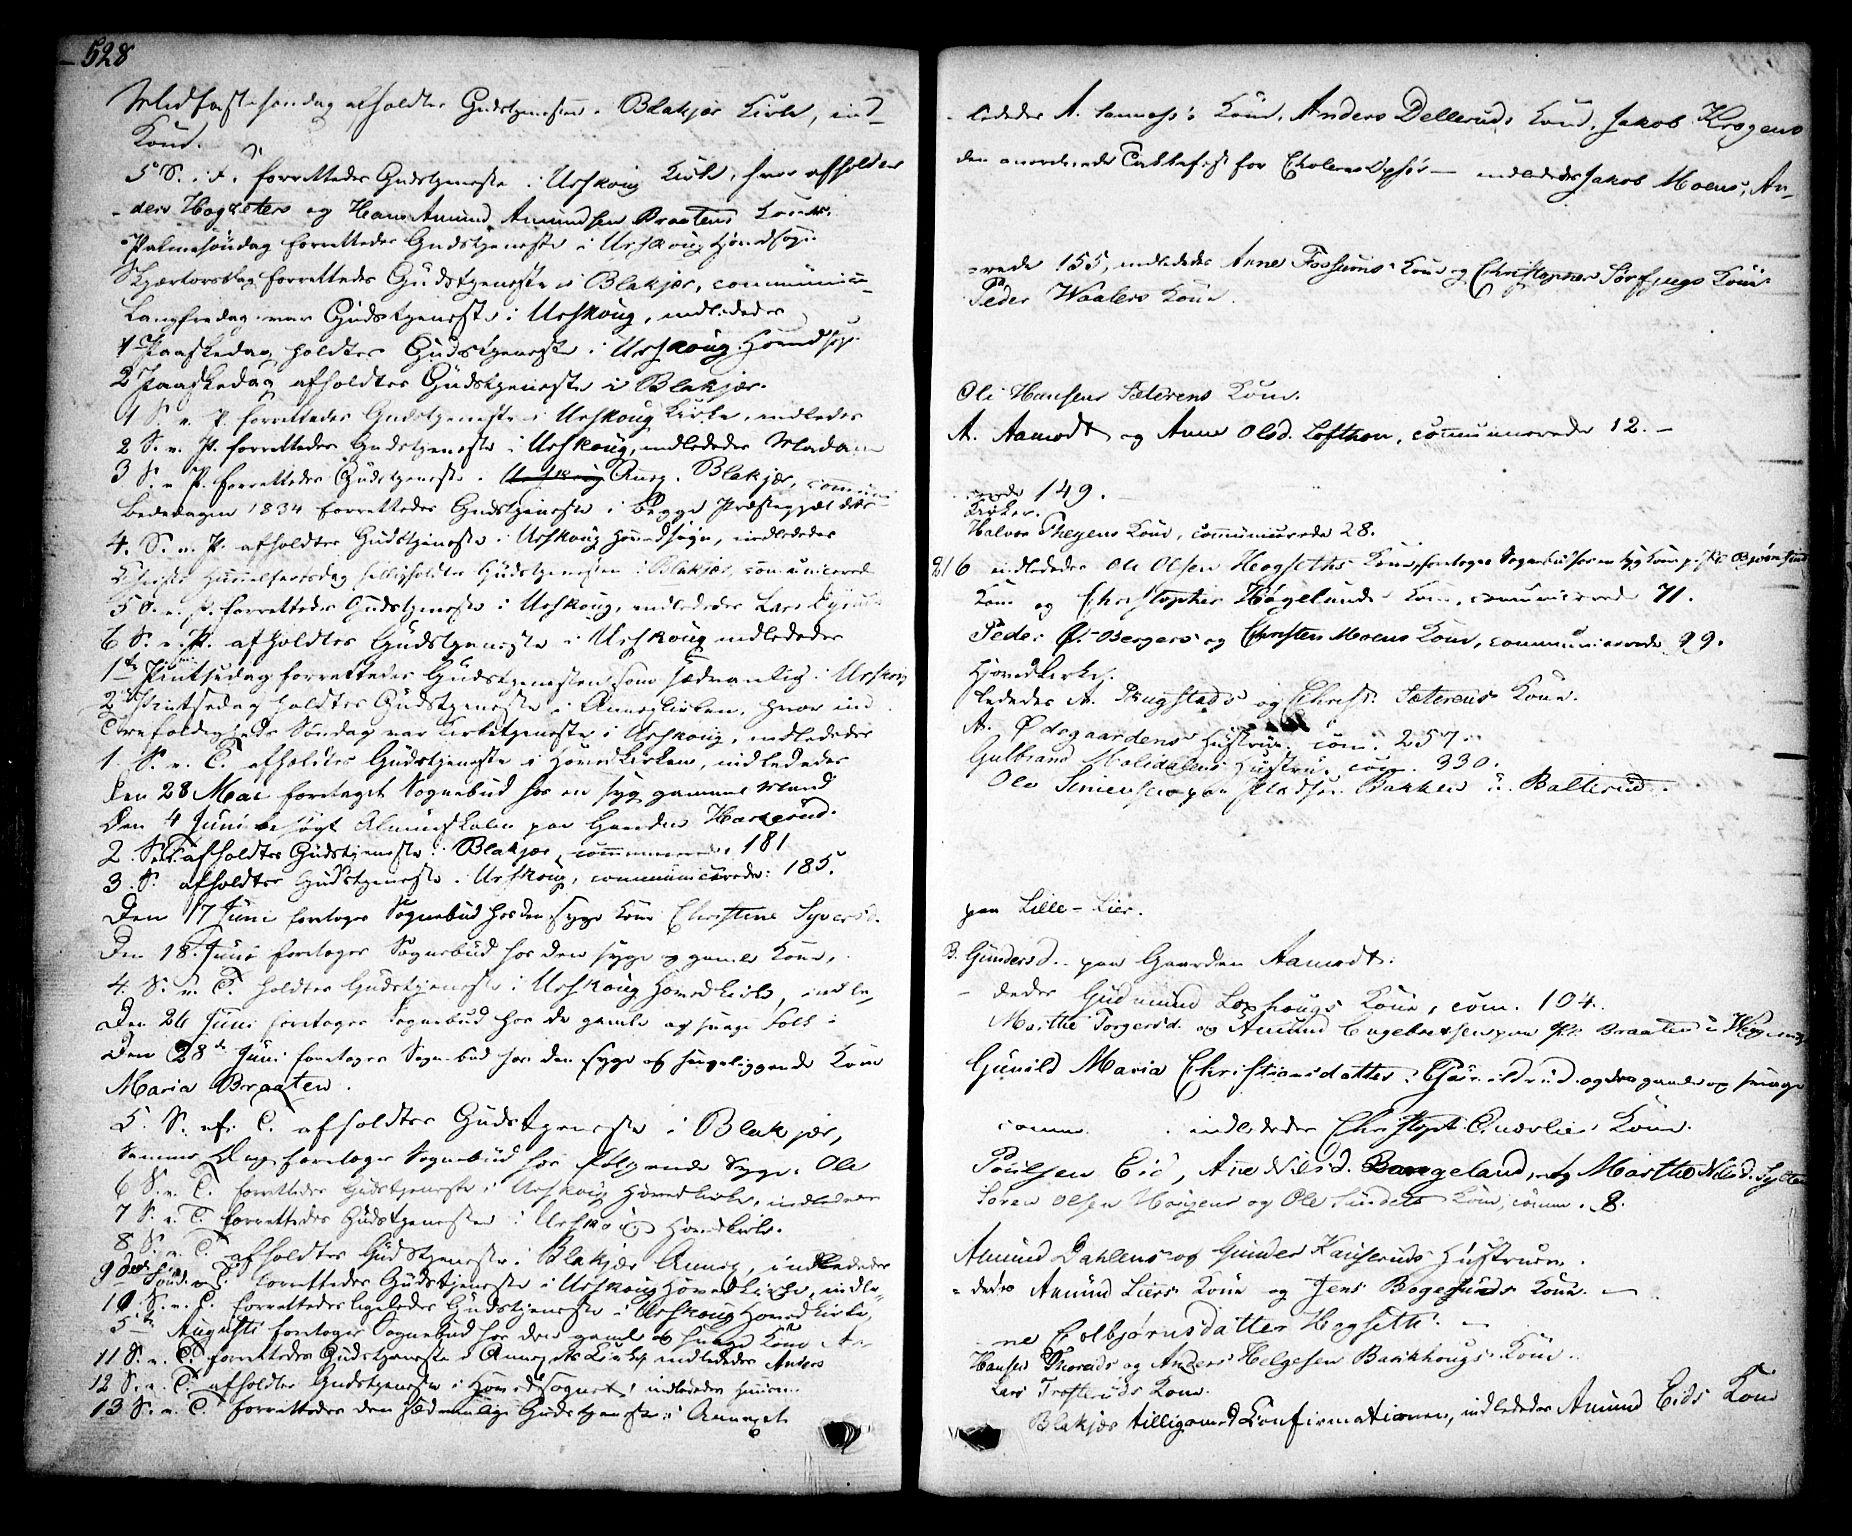 528
Midfastesøndag afholdtes Gudstjenesten i Blakjer Kirke, ind-
Kone.
5 S. i F. forrettedes Gudstjeneste i Urskoug Kirke, hvor afholdtes
ders Hogseters og Hans Amund Amundsen Braatens Koner.
Palmesøndag forrettedes Gudstjeneste i Urskoug Hovedsogn
Skjærtorsdag forrettedes Gudstjeneste i Blakjer, communice-
Langfredag var Gudstjeneste i Urskoug, indledes
1 Paaskedag holdtes Gudstjeneste i Urskoug Hovedsogn.
2 Paaskedag afholdtes Gudstjeneste i Blakjer.
1 S. e. P. forrettedes Gudstjeneste i Urskoug Kirke, indledes
2 S. e. P. forrettedes Gudstjeneste i Urskoug, indledes Madam
3 S. e. P. forrettedes Gudstjeneste i Urskoug Anex. Blakjer, communi-
Bededagen 1834 forrettedes Gudstjeneste i begge Præstegjældets
4. S. e. P. afholdtes Gudstjeneste i Urskoug Hovedsogn, indledes
Christi Himmelfartsdag helligholdtes Gudstjenesten i Blakjer, communicered
5 S. e. P. forrettedes Gudstjeneste i Urskoug, indledes Lars
6 S. e. P. afholdtes Gudstjeneste i Urskoug indledes
1te Pintsedag forrettedes Gudstjenesten som sædvanlig i Urskoug
2 Pintsedag holdtes Gudstjeneste i Annexkirken, hvor ind-
Trefoldigheds Søndag var Kirketjeneste i Urskoug, indledes
1. S. e. T. afholdtes Gudstjeneste i Hovedkirken, indledes
Den 28 Mai foretaget Sognebud hos en syg gammel Mand
Den 4 Juni besøgt Almueskolen paa Gaarden Harkerud.
2. S. e. T. afholdtes Gudstjeneste i Blakjer, communicerede 181
3. S. afholdtes Gudstjeneste i Urskoug, communicerede: 185.
Den 17 Juni foretages Sognebud hos den syge Kone Christine Syversd.
Den 18. Juni foretages Sognebud hos den syge og gamle Kone,
4. S. e. T. holdtes Gudstjeneste i Urskoug Hovedkirke, indle-
Den 26 Juni foretages Sognebud hos de gamle og svage Folk:
Den 28de Juni foretages Sognebud hos den syge og sengeliggende Kone
Maria Braaten.
5. S. ef. T. afholdtes Gudstjeneste i Blakjer,
Samme Dag foretages Sognebud hos følgende Syge: Ole
6 S. e. T. forrettedes Gudstjeneste i Urskoug Hovedkirke, indledes
7 S. e. T. forrettedes Gudstjenesten i Urskoug Hovedkirke.
8 S. e. T. afholdtes Gudstjeneste i Blakjer Annex, indledes
9de Sønd. e. T. forrettedes Gudstjeneste i Urskoug Hovedkirke, indle-
10. S. e. T. forrettedes ligeledes Gudstjeneste i Urskoug Hovedkirke,
5te Augusti foretages Sognebud hos den gamle og svage Kone An-
11 S. e. T. forrettedes Gudstjeneste i Annex Kirke indledes Anders
12 S. e. T. afholdtes Gudstjeneste i Hovedsognet, indledes
13 S. e. T. forrettedes den sædvanlige Gudstjeneste i Annexet
lededes A. Kone, Anders Dellerud Kone, Jakob Krogens
den anordnede Takkefest for Cholerens Ophør — indledes Jakob Moens, An-
-rede 155, indledes Arne Fossums Kone og Christopher Sørfjugs Kone
Peder Waalers Kone.
Ole Hansens Sæterens Kone.
A. Aamodt og Anne Olsd. Lofthon, communicerede 12. —
rede 149.
Kirker.
Halvor Thegens Kone, communicerede 28.
216 indledes Ole Olsen Hogseths Kone, foretages Sognebud hos en syg Kone p. Pl. Bjørnsund
Kone og Christopher Høgelunds Kone, communicerede 71.
Peder Ø. Bergers og Christen Moens Kone, communicerede 99.
Hovedkirke.
ledes A. Rugstads og Christ. Sæterens Kone.
A. Ødegaardens Hustrue. com. 257.
Gulbrand Molidalens Hustrue com. 330.
Ole Simensen paa Pladsen Bakken u. Balterud.
paa Lille-Lier.
B. Gundersd. paa Gaarden Aamodt.
dedes Gudmund Løxhougs Kone, com. 104.
Marthe Torgersd. og Amund Engebretsen paa Pl. Braaten u.
Gunild Maria Christiansdatter i og den gamle og svage
comm. indledes Christoph. Kone.
Poulsen Eid, Ane Nilsd. Bangeland, og Marthe Nilsd.
Søren Olsen Haugens og Ole Sundets Kone, comm. 8.
Amund Dahlens og Gunder Kauseruds Hustruer.
dedes Amund Liers Kone og Jens Bogesunds Kone. —
ne Colbjørnsdatter Hogseth. —
Hansen og Anders Helgesen Bankhougs Kone.
Lars Trosteruds Kone.
Blakjer tilligemed Confirmationen, indledes Amund Eids Kone